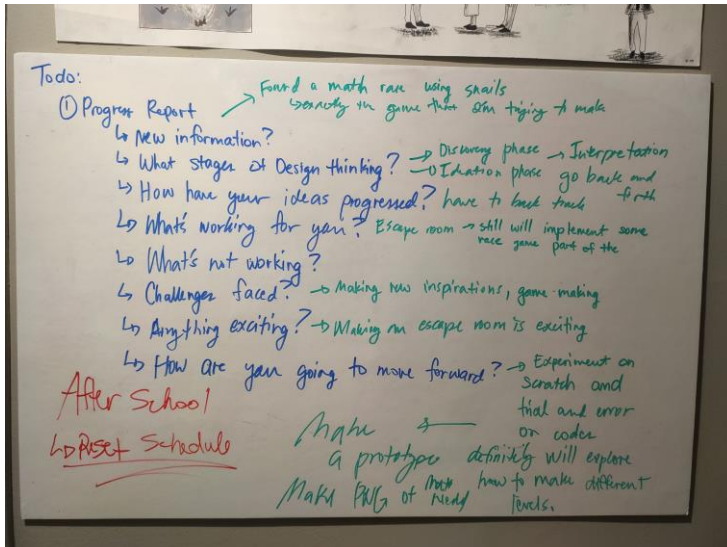 Todo:
① Progress Report
→ Found a math race using snails
↳ exactly the game that I'm trying to make
↳ New information?
↳ What stages of Design thinking? → Discovery phase → Interpretation
→ Ideation phase go back and forth
↳ How have your ideas progressed? have to back track
↳ What's working for you? Escape room → still will implement some
race game part of the
↳ What's not working?
↳ Challenges faced? → Making new inspirations, game-making
↳ Anything exciting? → Making an escape room is exciting
↳ How are you going to move forward? → Experiment on
scratch and
trial and error
or codes
After School
↳ Reset Schedule
Make ←
a prototype definitely will explore
how to make different
levels.
Make PNG of Nedd